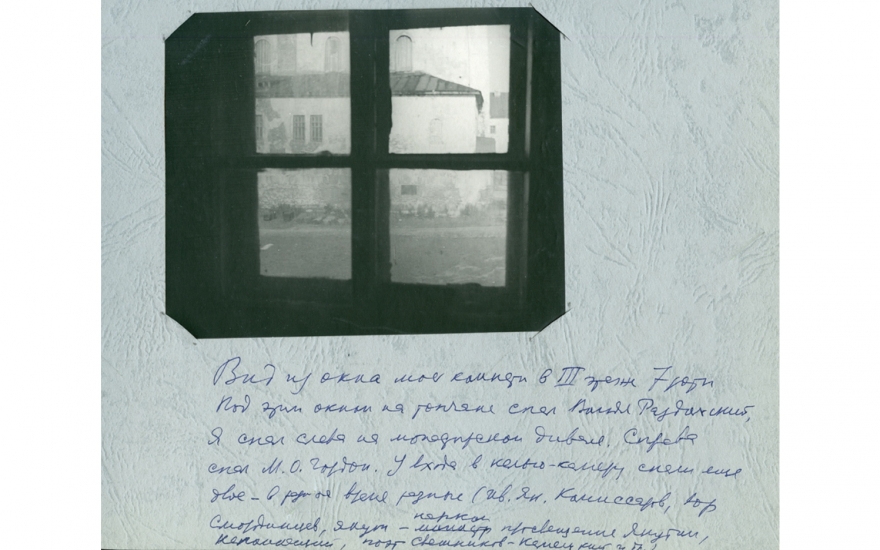 Вид из окна моей комнаты в III этаже 7 роты
Под этим окном на топчане спал Володя Раздольский,
Я спал слева на монастырском диване. Справа
спал М.О. Гордон. У входа в келью-камеру спали еще
двое – в разное время разные (Ив. Як. Комиссаров, вор
нарком
якут – министр просвещения Якутии,
поэт Свешников-Кемецкий и т.д.